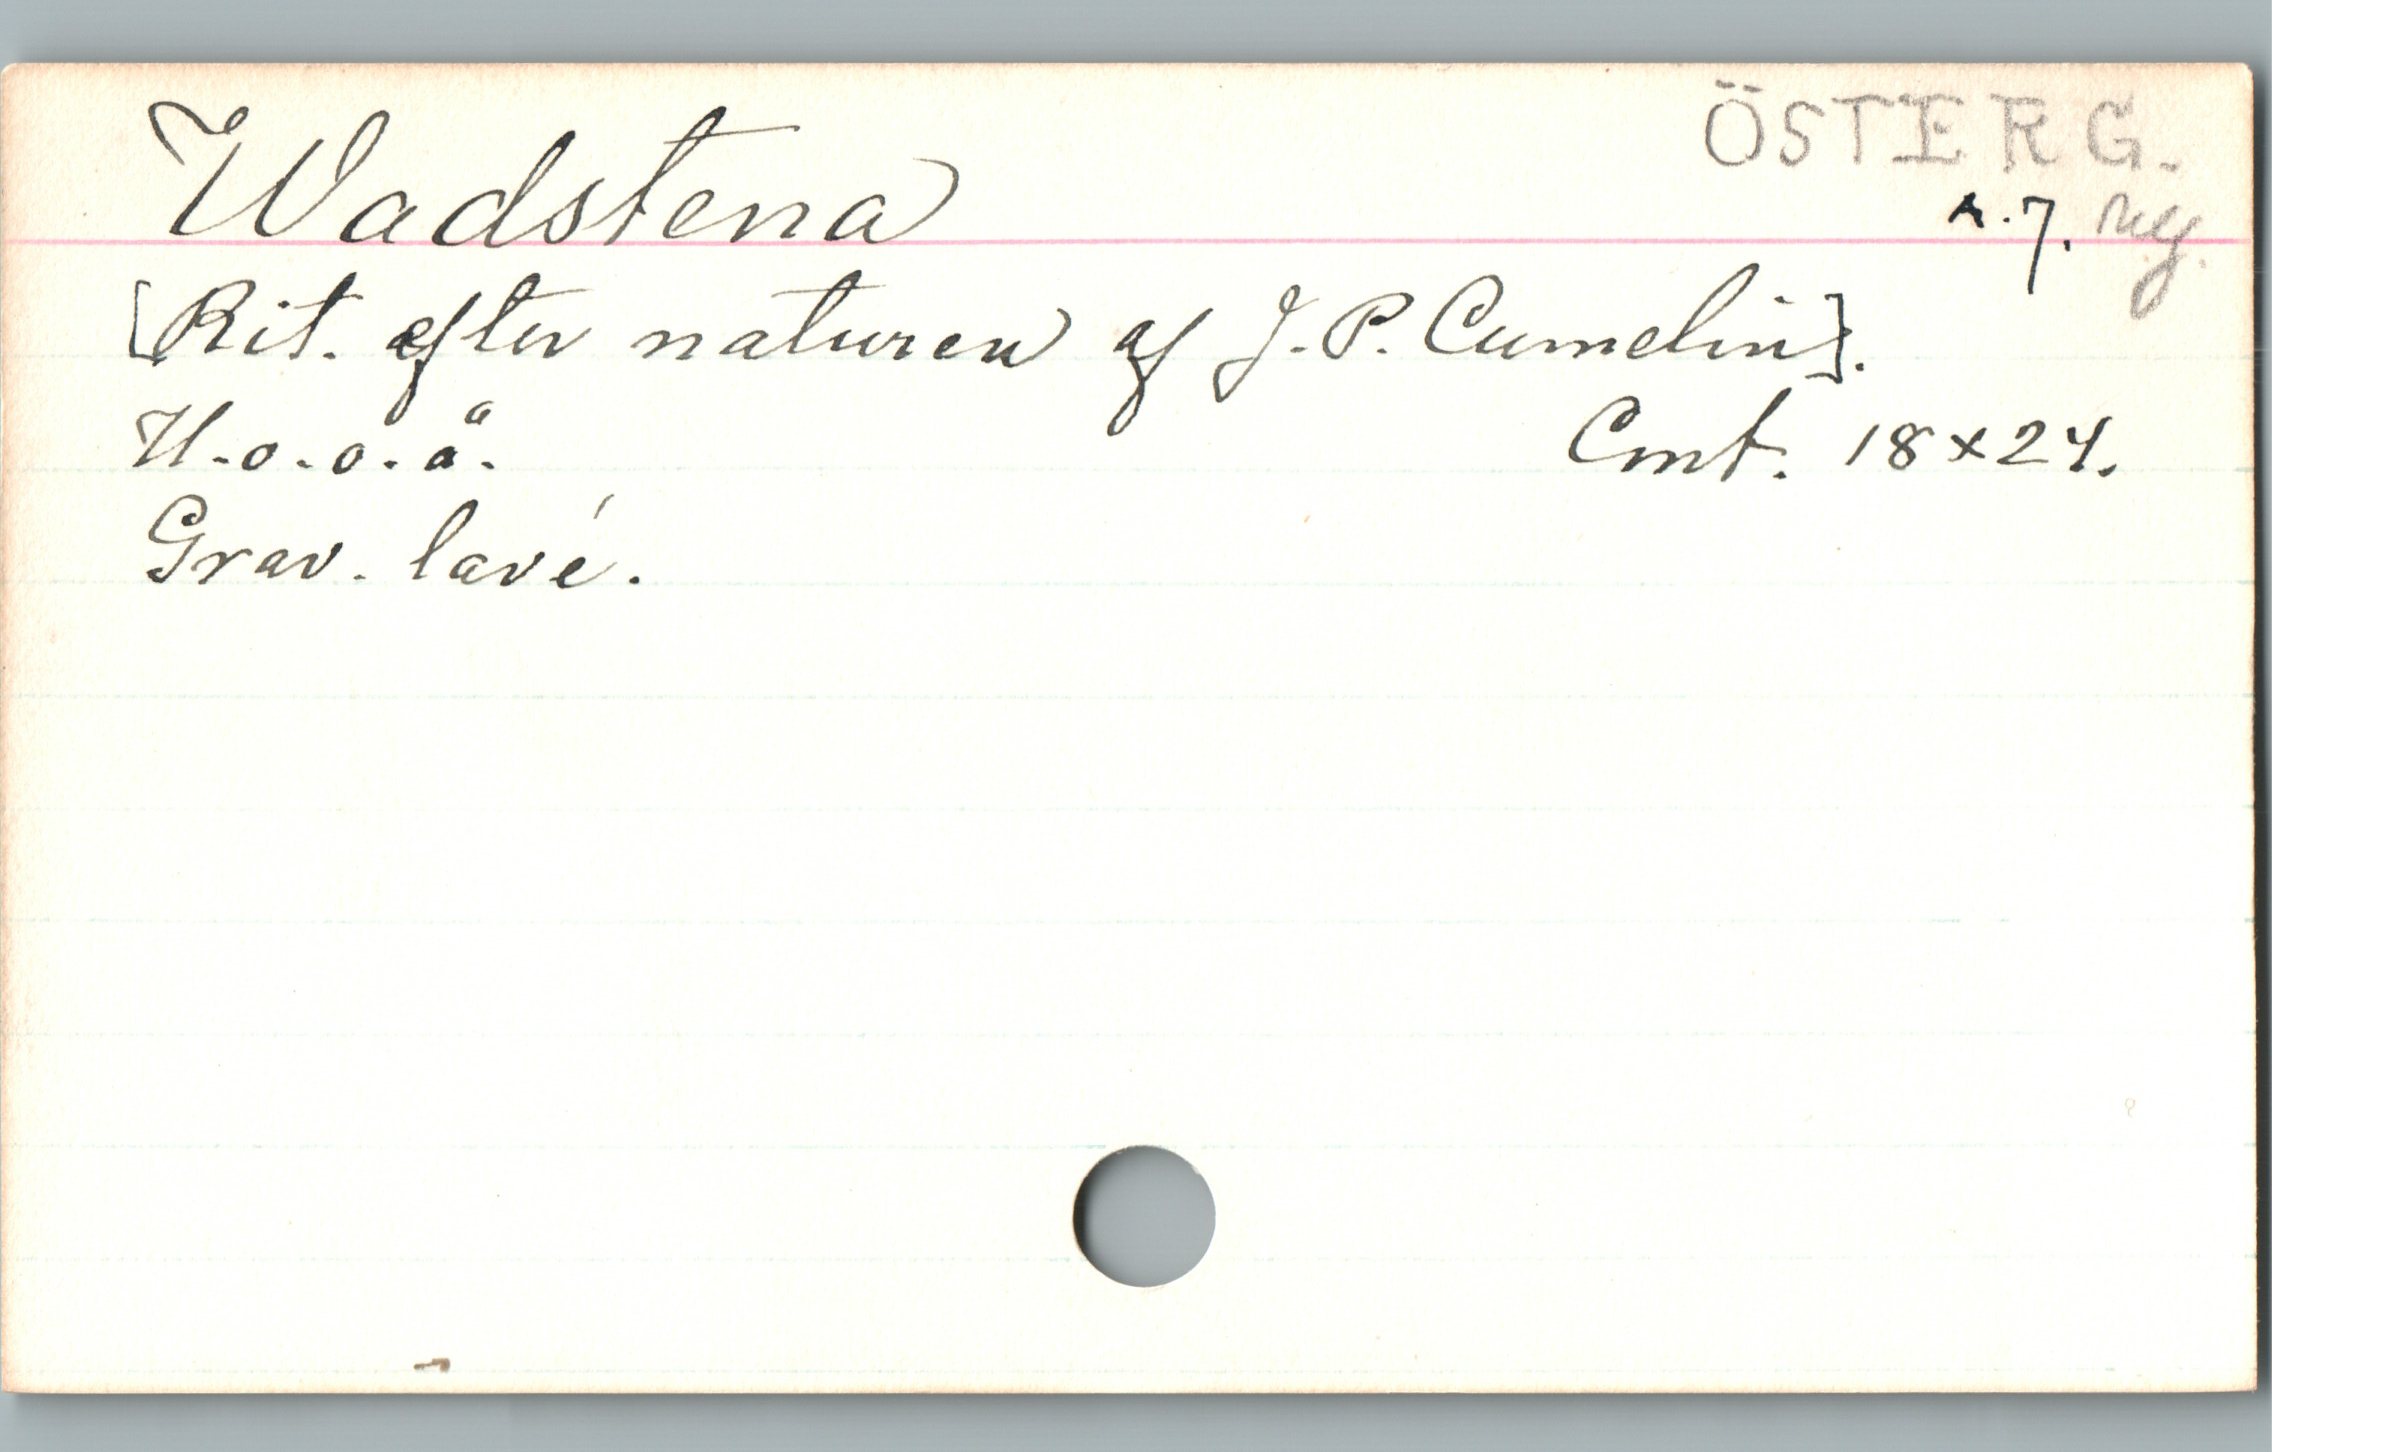 Wadstena
ÖSTERG.
A.7. Uly.
[Rit. efter naturen af J.P. Cumelin].
U.o.o.å. Cmt. 18×24.
Grav. lavé.